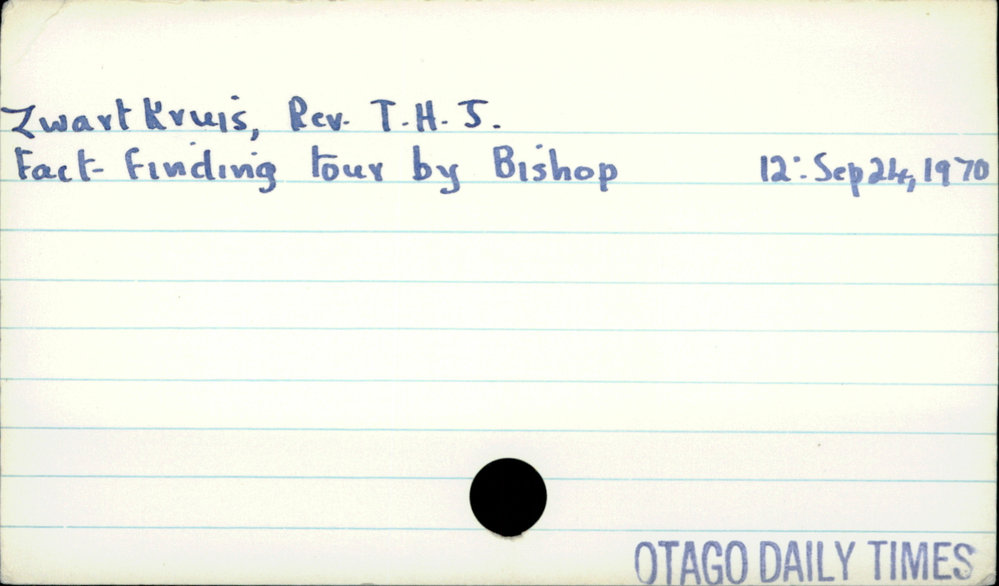 Zwartkruis, Rev. T.H.J.
Fact-finding tour by Bishop 12: Sep 24, 1970
OTAGO DAILY TIMES